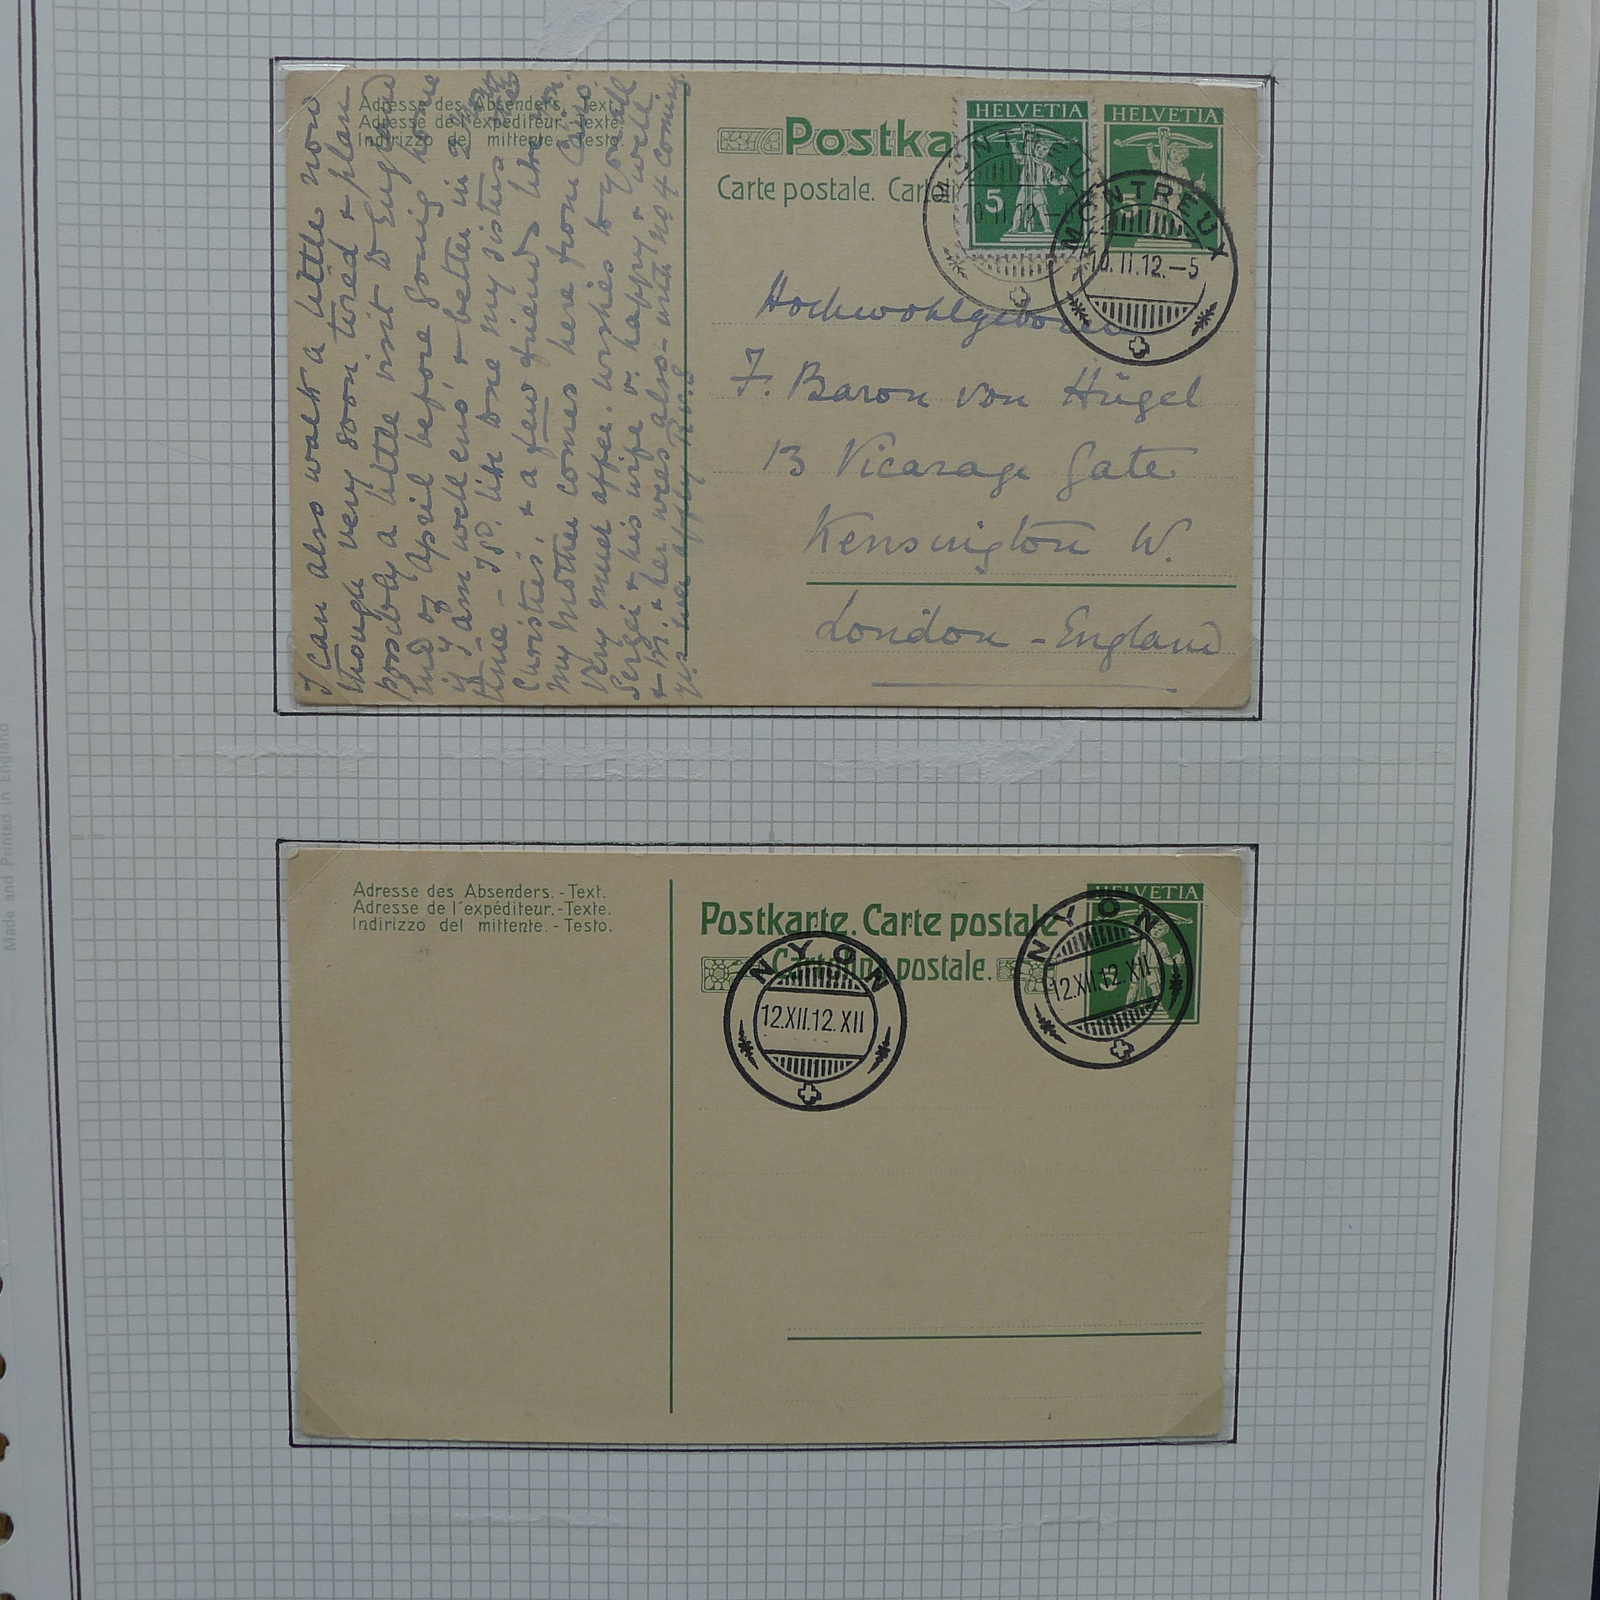 Adresse des Absenders. - Text.
Adresse de l'expéditeur. - Texte.
Indirizzo del mittente. - Testo.
I can also walk a little now
though very soon tired & plan
possibly a little visit to England
end of April before going home
if I am well eno' & better in
time - I sd. like to see my sisters
Christies, & a few friends
My Mother comes here from Cairo.
Very much affec. wishes to you all
Sergei & his wife v. happy & well.
& her wees also - with no 4 coming
Postka
Carte postale. Cartoli
HELVETIA
5
HELVETIA
5
MONTREUX
10.II.12.-
MONTREUX
10.II.12.-5
Hochwohlgeboren
F. Baron von Hügel
13 Vicarage Gate
Kensington W.
London - England
Adresse des Absenders. - Text.
Adresse de l'expéditeur. - Texte.
Indirizzo del mittente. - Testo.
Postkarte. Carte postale
Cartolina postale.
HELVETIA
5
NYON
12.XII.12.XII
NYON
12.XII.12.XII
Made and Printed in England